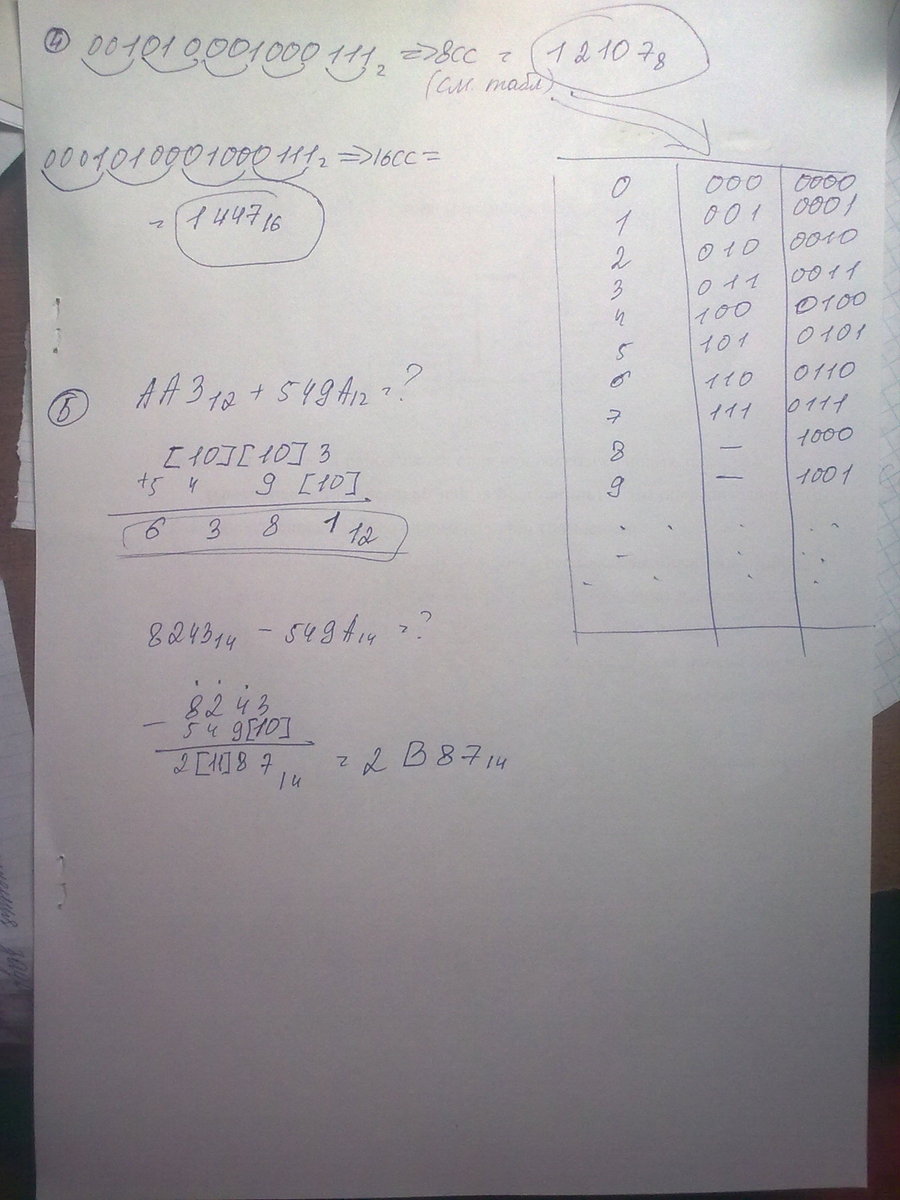 ④ 001010001000111₂ => 8СС = 12107₈
(см. табл)
0001010001000111₂ => 16СС =
= 1447₁₆
0 000 0000
1 001 0001
2 010 0010
3 011 0011
4 100 0100
5 101 0101
6 110 0110
7 111 0111
8 — 1000
9 — 1001
⑤ AA3₁₂ + 549A₁₂ = ?
[10][10] 3
+5 4 9 [10]
6 3 8 1₁₂
8243₁₄ - 549A₁₄ = ?
8243
- 549[10]
2[11]87₁₄ = 2B87₁₄